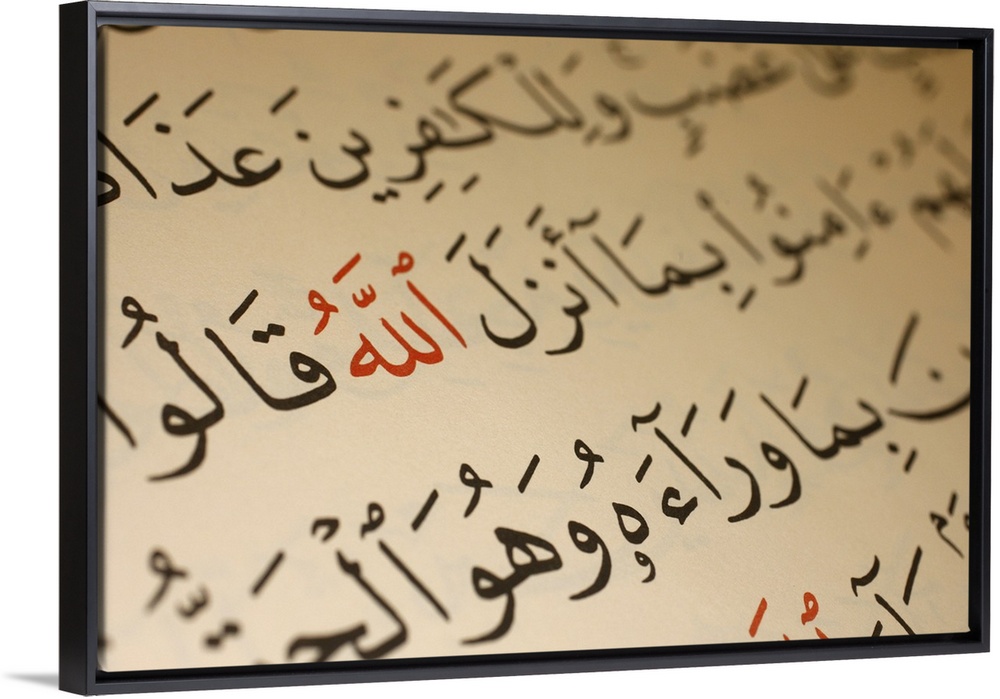 عَلَىٰ غَضَبٍ وَلِلْكَٰفِرِينَ عَذَا
لَهُمْ ءَامِنُوا۟ بِمَآ أَنزَلَ ٱللَّهُ قَالُوا۟
بِمَا وَرَآءَهُۥ وَهُوَ ٱلْحَقُّ